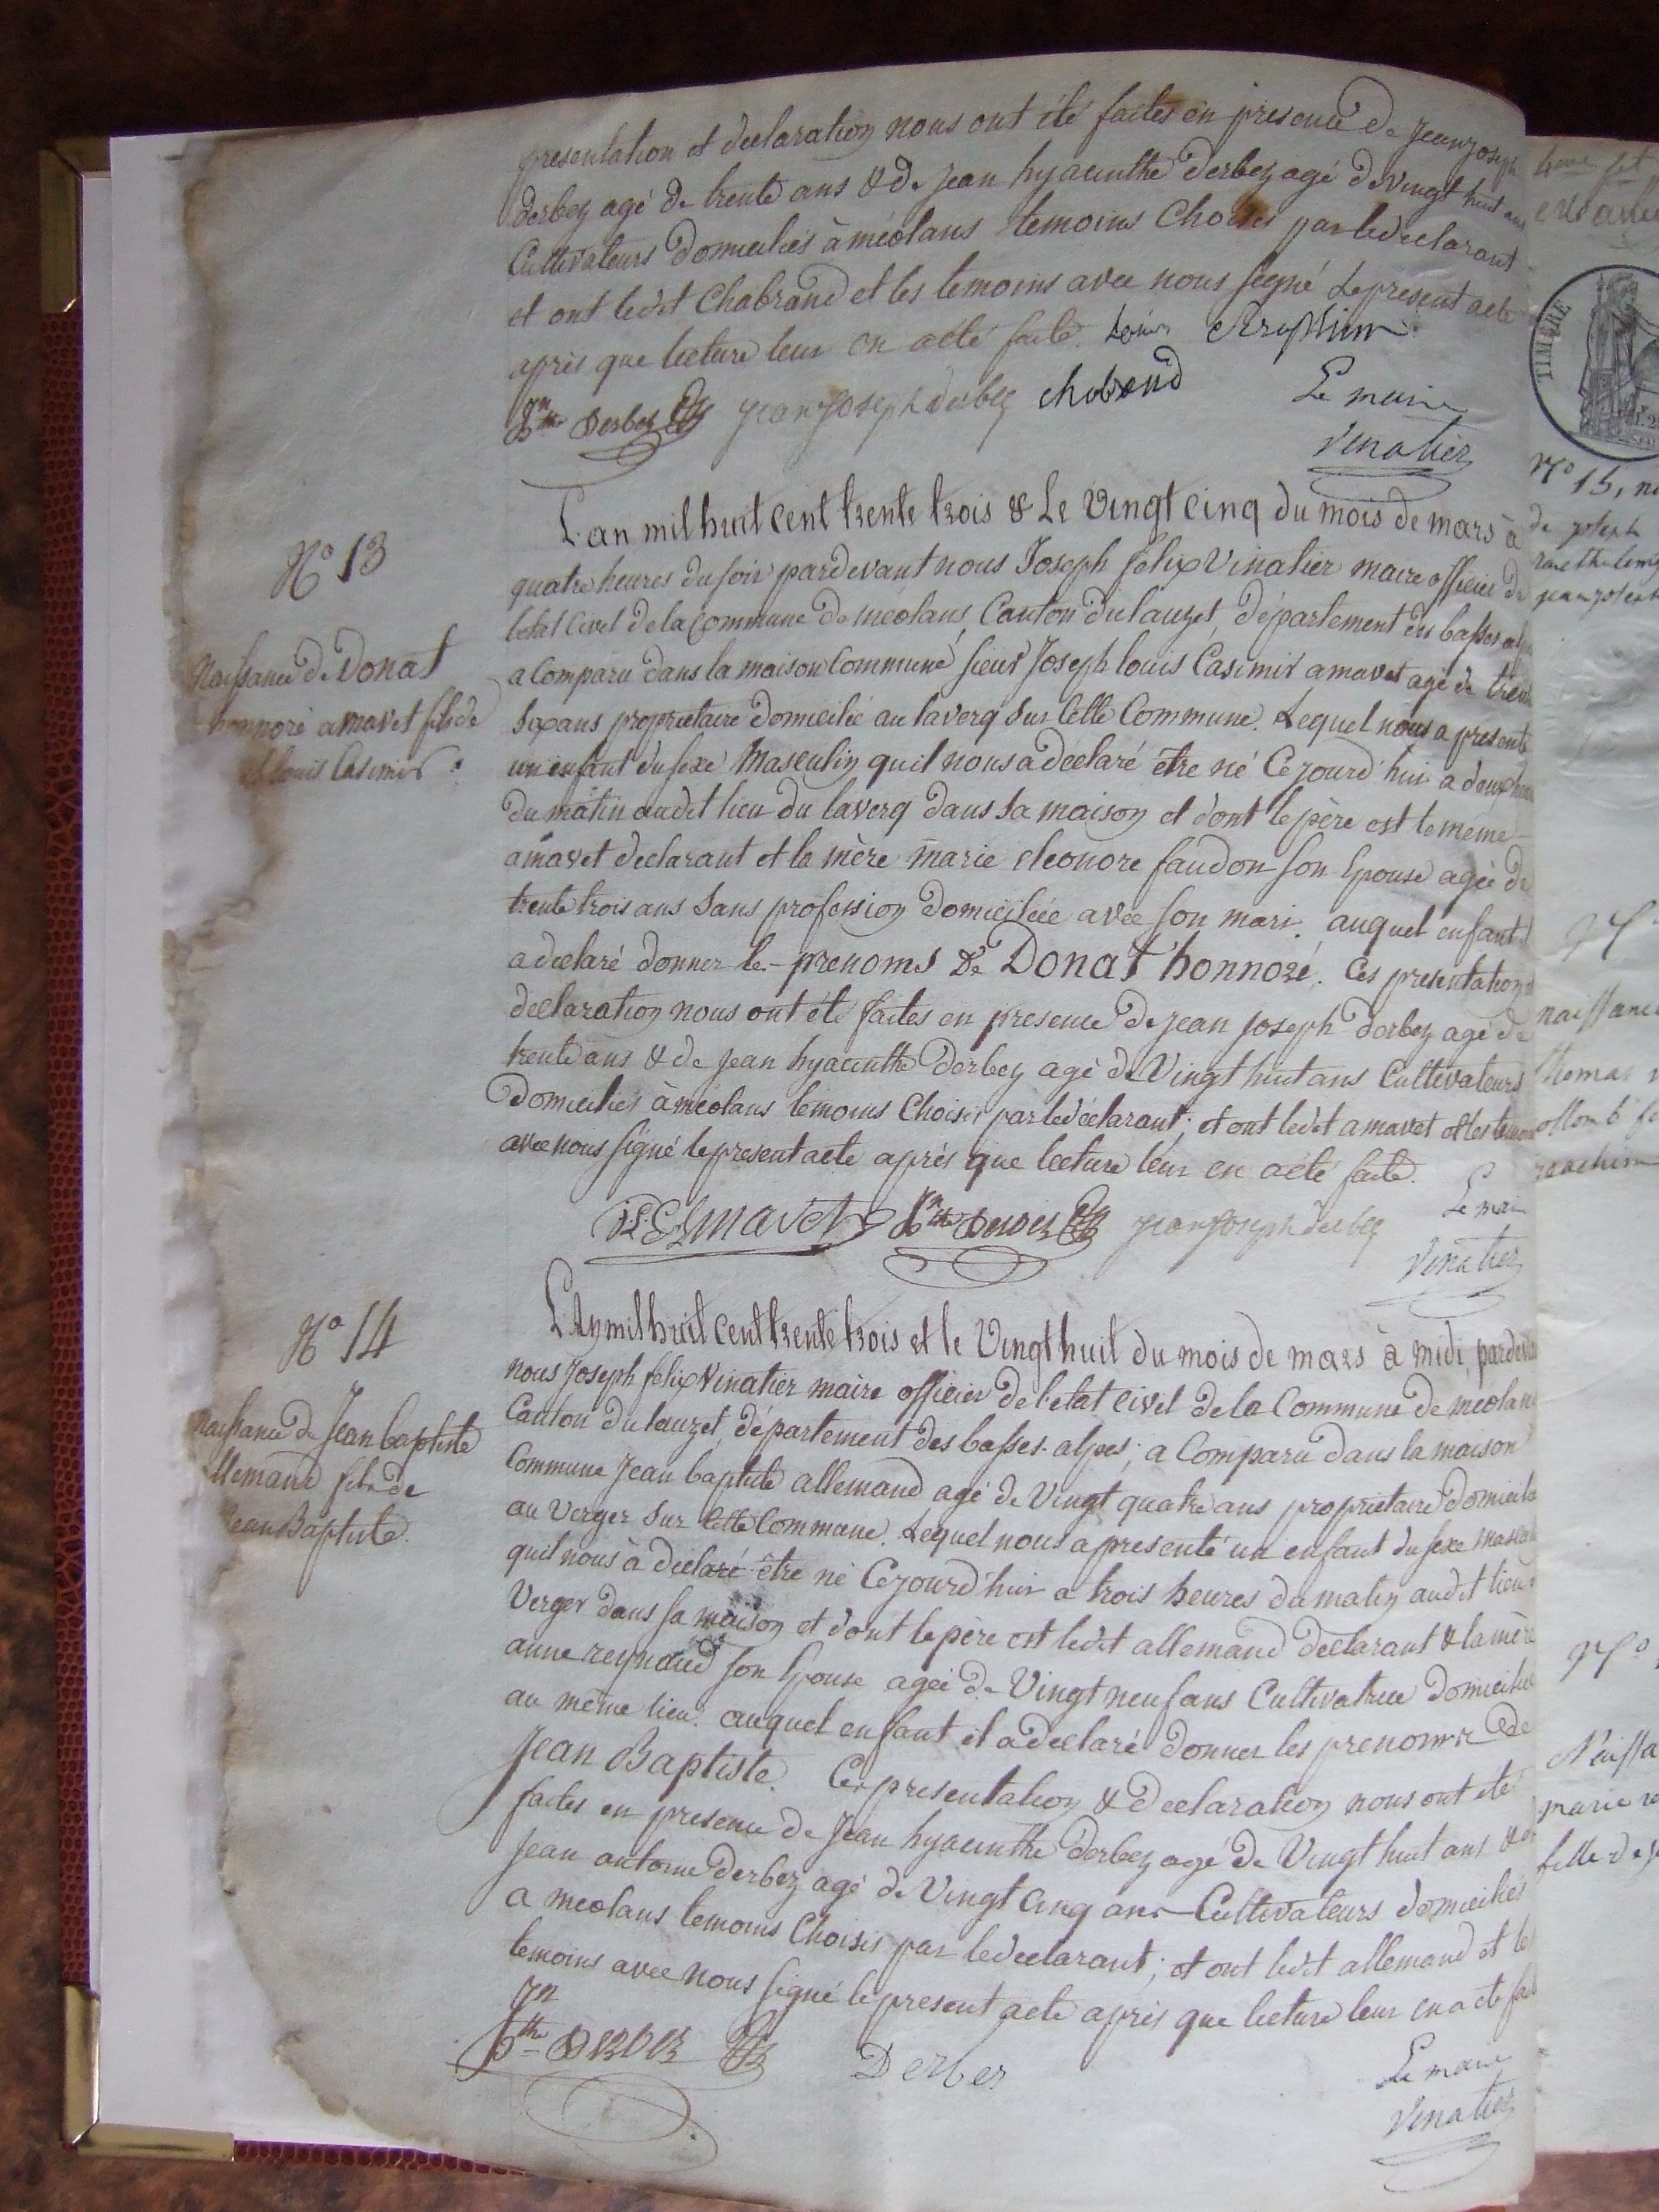 presentation et declaration nous ont été faites en presence de jean joseph
derbez agé de trente ans & de jean hyacinthe derbez agé de vingt huit ans
Cultivateurs domiciliés à méolans temoins Choisis par le declarant
et ont ledit Chabrand et les temoins avec nous signé le present acte
après que lecture leur en a eté faite.
jn hte Derbez jean joseph derbez chabrand Le maire
vinatier
N° 13
Naissance de Donat
honnoré amavet fils de
louis Casimir
L'an mil huit cent trente trois & Le vingt cinq du mois de mars à
quatre heures du soir pardevant nous Joseph felix Vinatier maire officier de
letat Civil de la Commune de méolans Canton du lauzet, département des basses alpes
a Comparu dans la maison Commune sieur Joseph louis Casimir amavet agé de trente
six ans proprietaire domicilié au laverq sur cette Commune. Lequel nous a presenté
un enfant du sexe Masculin quil nous a déclaré être né Cejourd'hui a deux heures
du matin audit lieu du laverq dans sa maison et dont le père est le meme
amavet declarant et la mère marie eleonore faudon son Epouse agée de
trente trois ans sans profession domiciliée avec son mari. auquel enfant il
a declaré donner les prenoms de Donat honnoré. Ces presentation et
declaration nous ont été faites en presence de jean joseph derbez agé de
trente ans & de jean hyacinthe Derbez agé de Vingt huit ans Cultivateurs
Domiciliés à méolans temoins Choisis par le declarant; et ont ledit amavet et les temoins
avec nous signé le present acte après que lecture leur en a eté faite.
Amavet jn hte Derbez jean joseph derbez Le maire
Vinatier
N° 14
Naissance de Jean baptiste
allemand fils de
Jean Baptiste.
L'an mil huit cent trente trois et le Vingt huit du mois de mars à midi pardevant
nous Joseph felix Vinatier maire officier de l'etat civil de la Commune de méolans
Canton du lauzet, département des basses-alpes; a Comparu dans la maison
Commune Jean baptiste allemand agé de Vingt quatre ans proprietaire domicilié
au Verger sur cette Commune. Lequel nous a presenté un enfant du sexe masculin
quil nous à declaré être né Cejourd'hui a trois heures du matin audit lieu du
Verger dans sa maison et dont le père est ledit allemand declarant & la mère
anne reynaud son Epouse agée de Vingt neuf ans Cultivatrice domiciliée
au même lieu. auquel enfant il a declaré donner les prenoms de
Jean Baptiste. Ces presentation & declaration nous ont été
faites en presence de Jean hyacinthe derbez agé de Vingt huit ans & de
Jean antoine Derbez agé de Vingt Cinq ans Cultivateurs domiciliés
a méolans temoins Choisis par le declarant; et ont ledit allemand et les
temoins avec nous signé le present acte après que lecture leur en a eté faite
jn hte Derbez Derbez Le maire
Vinatier
TIMBRE
N° 15
de joseph
N°
naissance
thomas
N°
Naissa
marie
fille de